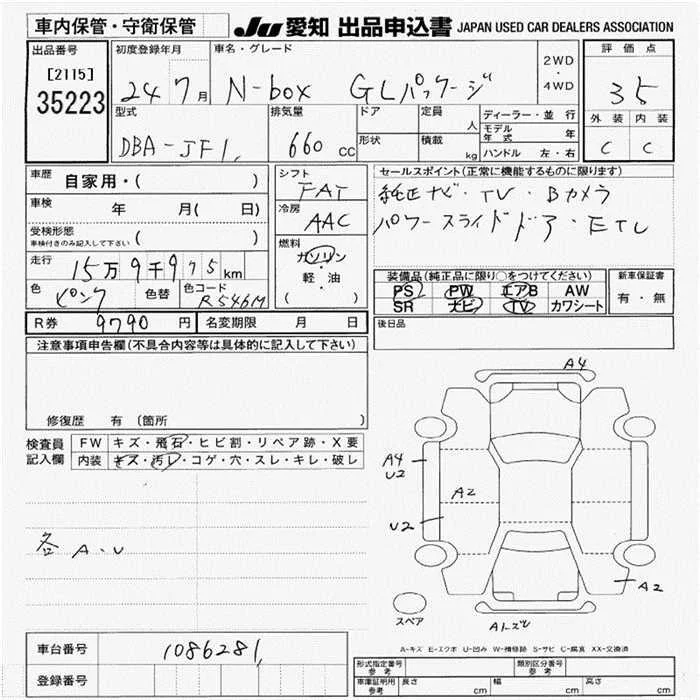 車内保管・守衛保管 JU 愛知 出品申込書 JAPAN USED CAR DEALERS ASSOCIATION
出品番号 初度登録年月 車名・グレード 2WD ・ 4WD 評価点
[2115]
35223
24 7月 N-box GLパッケージ 35
型式 排気量 ドア 定員 人 ディーラー・並行 外装 内装
形状 積載 kg モデル年式 年
DBA-JF1 660cc ハンドル 左・右 C C
車歴 自家用・( ) シフト FAT セールスポイント(正常に機能するものに限ります)
純正ナビ・TV・Bカメラ
車検 年 月( 日) 冷房 AAC
パワースライドドア・ETC
受検形態 車検付きのみ記入して下さい ( ) 燃料 ガソリン ・ 軽・油 ・ ( )
走行 15万9千975km
装備品(純正品に限り○をつけてください) 新車保証書
色 ピンク 色替 色コード R546M
PS PW エアB AW 有・無
SR ナビ TV カワシート
R券 9790円 名変期限 月 日 後日品
注意事項申告欄(不具合内容等は具体的に記入して下さい)
修復歴 有 〔箇所 〕
検査員記入欄 FW キズ・飛石・ヒビ割・リペア跡・X要
内装 キズ・汚レ・コゲ・穴・スレ・キレ・破レ
各 A・U
A4
A4
U2
A2
U2
A2
スペア
A1ズレ
A-キズ E-エクボ U-凹み W-補修跡 S-サビ C-腐食 XX-交換済
車台番号 1086281
登録番号
形式指定番号 参考 類別区分番号 参考
車庫証明用 参考 長さ cm 幅 cm 高さ cm